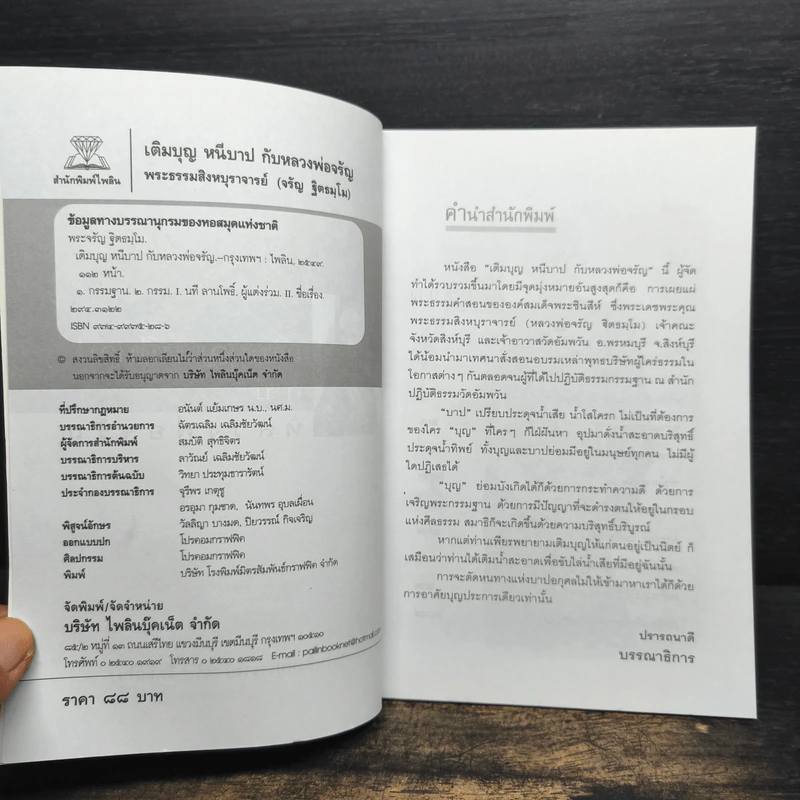 สำนักพิมพ์ไพลิน
เติมบุญ หนีบาป กับหลวงพ่อจรัญ
พระธรรมสิงหบุราจารย์ (จรัญ ฐิตธมฺโม)
ข้อมูลทางบรรณานุกรมของหอสมุดแห่งชาติ
พระจรัญ ฐิตธมฺโม.
เติมบุญ หนีบาป กับหลวงพ่อจรัญ.--กรุงเทพฯ : ไพลิน, ๒๕๔๙.
๑๑๒ หน้า.
๑. กรรมฐาน. ๒. กรรม. I. นที ลานโพธิ์, ผู้แต่งร่วม. II. ชื่อเรื่อง.
๒๙๔.๓๑๒๒
ISBN ๙๗๔-๙๙๗๕-๒๘-๖
© สงวนลิขสิทธิ์ ห้ามลอกเลียนไม่ว่าส่วนหนึ่งส่วนใดของหนังสือ
นอกจากจะได้รับอนุญาตจาก บริษัท ไพลินบุ๊คเน็ต จำกัด
ที่ปรึกษากฎหมาย อนันต์ แย้มเกษร น.บ., นศ.ม.
บรรณาธิการอำนวยการ ฉัตรเฉลิม เฉลิมชัยวัฒน์
ผู้จัดการสำนักพิมพ์ สมบัติ สุทธิจิตร
บรรณาธิการบริหาร ลาวัณย์ เฉลิมชัยวัฒน์
บรรณาธิการต้นฉบับ วิทยา ประทุมธารารัตน์
ประจำกองบรรณาธิการ จุรีพร เกตุชู
อรอุมา กุมชาด, นันทพร อุบลเผื่อน
พิสูจน์อักษร วัลลิญา บางมด, ปิยวรรณ์ กิจเจริญ
ออกแบบปก โปรคอมกราฟฟิค
ศิลปกรรม โปรคอมกราฟฟิค
พิมพ์ บริษัท โรงพิมพ์มิตรสัมพันธ์กราฟฟิค จำกัด
จัดพิมพ์/จัดจำหน่าย
บริษัท ไพลินบุ๊คเน็ต จำกัด
๘๕/๒ หมู่ที่ ๑๓ ถนนเสรีไทย แขวงมีนบุรี เขตมีนบุรี กรุงเทพฯ ๑๐๕๑๐
โทรศัพท์ ๐ ๒๕๔๐ ๑๙๑๙ โทรสาร ๐ ๒๕๔๐ ๑๘๑๘ E-mail : pailinbooknet@hotmail.com
ราคา ๘๘ บาท
คำนำสำนักพิมพ์
หนังสือ "เติมบุญ หนีบาป กับหลวงพ่อจรัญ" นี้ ผู้จัด
ทำได้รวบรวมขึ้นมาโดยมีจุดมุ่งหมายอันสูงสุดก็คือ การเผยแผ่
พระธรรมคำสอนขององค์สมเด็จพระชินสีห์ ซึ่งพระเดชพระคุณ
พระธรรมสิงหบุราจารย์ (หลวงพ่อจรัญ ฐิตธมฺโม) เจ้าคณะ
จังหวัดสิงห์บุรี และเจ้าอาวาสวัดอัมพวัน อ.พรหมบุรี จ.สิงห์บุรี
ได้น้อมนำมาเทศนาสั่งสอนอบรมเหล่าพุทธบริษัทผู้ใคร่ธรรมใน
โอกาสต่างๆ กันตลอดจนผู้ที่ได้ไปปฏิบัติธรรมกรรมฐาน ณ สำนัก
ปฏิบัติธรรมวัดอัมพวัน
"บาป" เปรียบประดุจน้ำเสีย น้ำโสโครก ไม่เป็นที่ต้องการ
ของใคร "บุญ" ที่ใครๆ ก็ใฝ่ฝันหา อุปมาดั่งน้ำสะอาดบริสุทธิ์
ประดุจน้ำทิพย์ ทั้งบุญและบาปย่อมมีอยู่ในมนุษย์ทุกคน ไม่มีผู้
ใดปฏิเสธได้
"บุญ" ย่อมบังเกิดได้ก็ด้วยการกระทำความดี ด้วยการ
เจริญพระกรรมฐาน ด้วยการมีปัญญาที่จะดำรงตนให้อยู่ในกรอบ
แห่งศีลธรรม สมาธิก็จะเกิดขึ้นด้วยความบริสุทธิ์บริบูรณ์
หากแต่ท่านเพียรพยายามเติมบุญให้แก่ตนอยู่เป็นนิตย์ ก็
เสมือนว่าท่านได้เติมน้ำสะอาดเพื่อขับไล่น้ำเสียที่มีอยู่ฉันนั้น
การจะตัดหนทางแห่งบาปอกุศลไม่ให้เข้ามาหาเราได้ก็ด้วย
การอาศัยบุญประการเดียวเท่านั้น
ปรารถนาดี
บรรณาธิการ